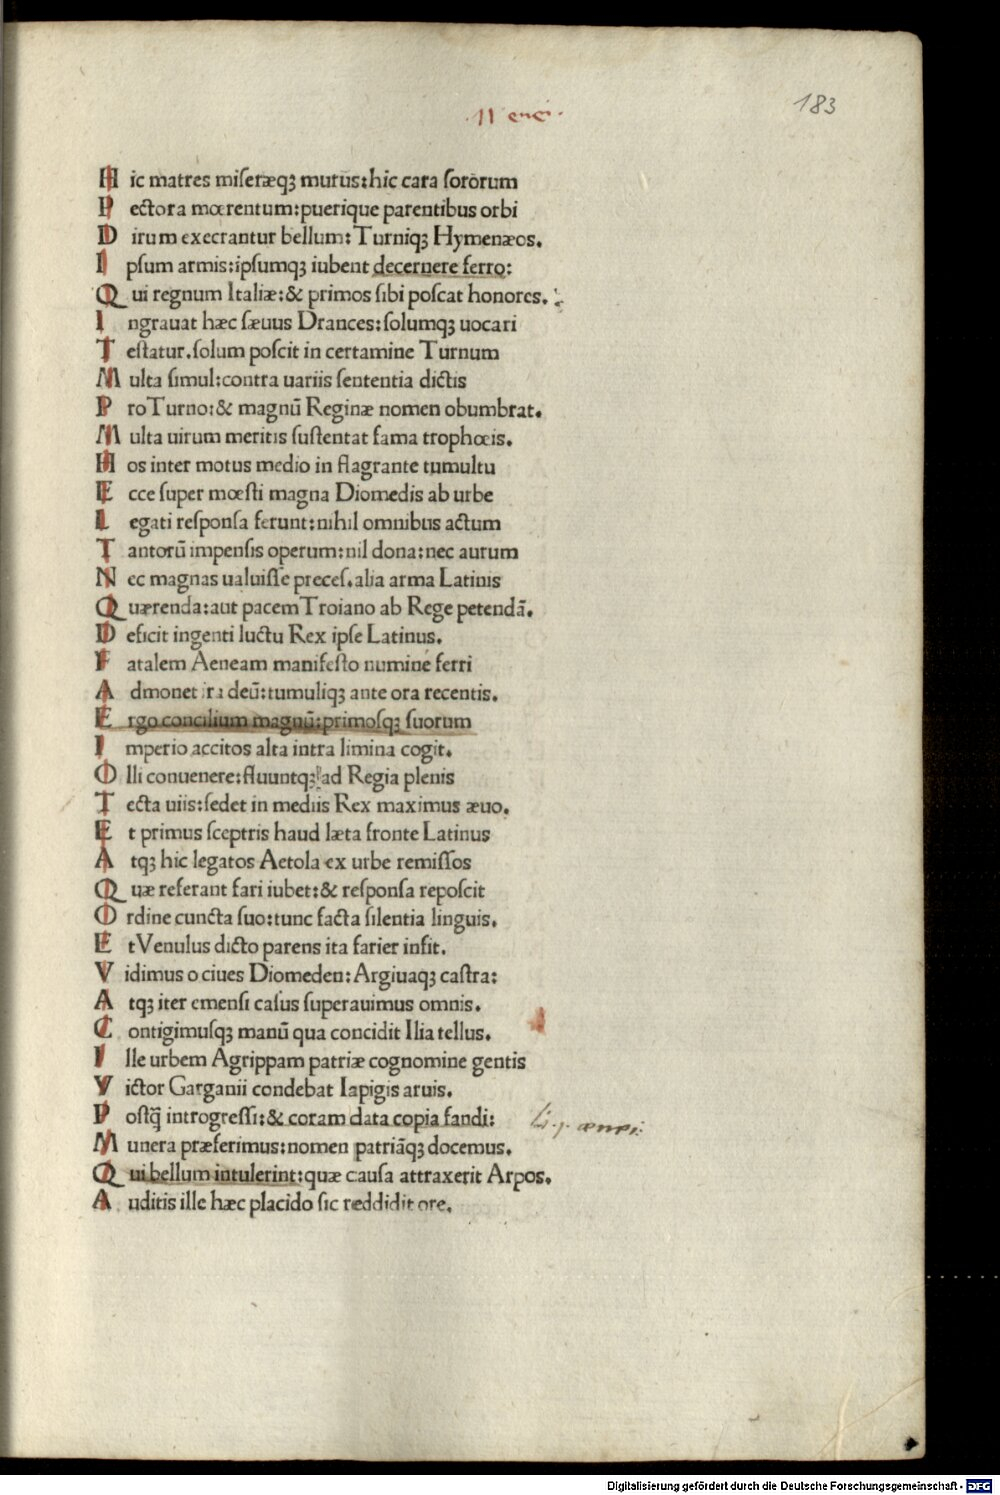 183
11 enei
H ic matres miſeræqꝫ murus:hic cara ſororum
P ectora mœrentum:puerique parentibus orbi
D irum execrantur bellum: Turniqꝫ Hymenæos.
I pſum armis:ipſumqꝫ iubent decernere ferro:
Q ui regnum Italiæ:& primos ſibi poſcat honores.
I ngrauat hæc ſæuus Drances:ſolumqꝫ uocari
T eſtatur.ſolum poſcit in certamine Turnum
M ulta ſimul:contra uariis ſententia dictis
P ro Turno:& magnū Reginæ nomen obumbrat.
M ulta uirum meritis ſuſtentat fama trophœis.
H os inter motus medio in flagrante tumultu
E cce ſuper mœſti magna Diomedis ab urbe
L egati reſponſa ferunt:nihil omnibus actum
T antorū impenſis operum:nil dona:nec aurum
N ec magnas ualuiſſe preceſ.alia arma Latinis
Q uærenda:aut pacem Troiano ab Rege petendā.
D eficit ingenti luctu Rex ipſe Latinus.
F atalem Aeneam manifeſto numine ferri
A dmonet ira deū:tumuliqꝫ ante ora recentis.
E rgo concilium magnū:primoſqꝫ ſuorum
I mperio accitos alta intra limina cogit.
O lli conuenere:fluuntqꝫ ad Regia plenis
T ecta uiis:ſedet in mediis Rex maximus æuo.
E t primus ſceptris haud læta fronte Latinus
A tqꝫ hic legatos Aetola ex urbe remiſſos
Q uæ referant fari iubet:& reſponſa repoſcit
O rdine cuncta ſuo:tunc facta ſilentia linguis.
E t Venulus dicto parens ita farier inſit.
V idimus o ciues Diomeden: Argiuaqꝫ caſtra:
A tqꝫ iter emenſi caſus ſuperauimus omnis.
C ontigimuſqꝫ manū qua concidit Ilia tellus.
I lle urbem Agrippam patriæ cognomine gentis
V ictor Garganii condebat Iapigis aruis.
P oſtq̄ introgreſſi:& coram data copia fandi:
M unera præferimus:nomen patriāqꝫ docemus.
Q ui bellum intulerint:quæ cauſa attraxerit Arpos.
A uditis ille hæc placido ſic reddidit ore.
Digitalisierung gefördert durch die Deutsche Forschungsgemeinschaft - DFG